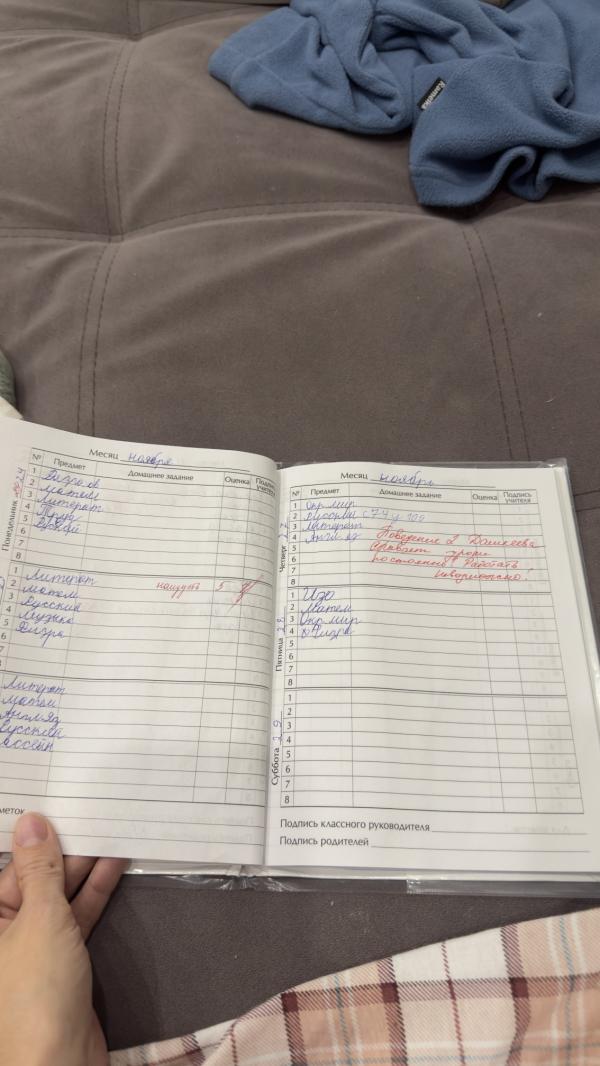 Kamelia
Месяц ноябрь
№ Предмет Домашнее задание Оценка Подпись учителя
Понедельник 24
1
2 матем
3 Литерат
4 Труд
5 Русский
6
7
8
1 Литерат наизусть 5
2 матем
3 Русский
4 Музыка
5 Физра
6
7
8
Литерат
матем
Англ яз
Русский
Бассейн
меток
Месяц ноябрь
№ Предмет Домашнее задание Оценка Подпись учителя
Четверг 27
1 Окр мир
2 Русский с 74 у 109
3 Литерат
4 Англ яз Поведение 2 Дашкеева
5 срывает уроки
6 постоянно! Работать
7 невозможно!
8
Пятница 28
1 Изо
2 Матем
3 Окр мир
4 Физра
5
6
7
8
Суббота 29
1
2
3
4
5
6
7
8
Подпись классного руководителя
Подпись родителей